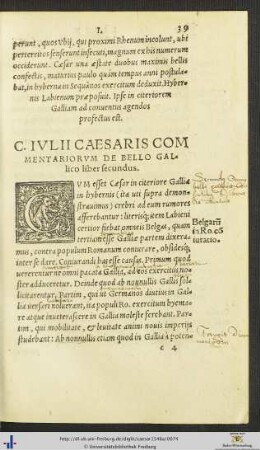 I. 39
perunt, quos Vbij, qui proximi Rhenum incolunt, ubi
perterritos senserunt insecuti, magnum ex his numerum
occiderunt. Cæsar una æstate duobus maximis bellis
confectis, maturius paulo quàm tempus anni postula-
bat, in hyberna in Sequanos exercitum deduxit. Hyber-
nis Labienum præposuit. Ipse in citeriorem
Galliam ad conuentus agendos
profectus est.
C. IVLII CAESARIS COM
MENTARIORVM DE BELLO GAL-
lico liber secundus.
CVM esset Cæsar in citeriore Gallia
in hybernis (ita uti supra demon-
strauimus) crebri ad eum rumores
afferebantur: literisq; item Labieni
certior fiebat omneis Belgas, quam
tertiam esse Galliæ partem dixera-
mus, contra populum Romanum coniurare, obsidesq;
inter se dare. Coniurandi has esse causas. Primum quod
uererentur ne omni pacata Gallia, ad eos exercitus no-
ster adduceretur. Deinde quod ab nonnullis Gallis solli-
citarentur, Partim, qui ut Germanos diutius in Gal-
lia uersari noluerant, ita populi Ro. exercitum hyema-
re atque inueterascere in Gallia moleste ferebant. Par-
tim, qui mobilitate, & leuitate animi nouis imperijs
studebant: Ab nonnullis etiam quòd in Gallia à poten-
c 4
Belgarũ
in Ro. cõ
iuratio.
© Universitätsbibliothek Freiburg